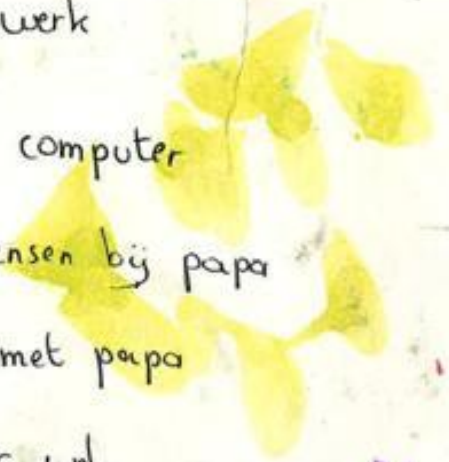 werk
computer
nsen bij papa
met papa